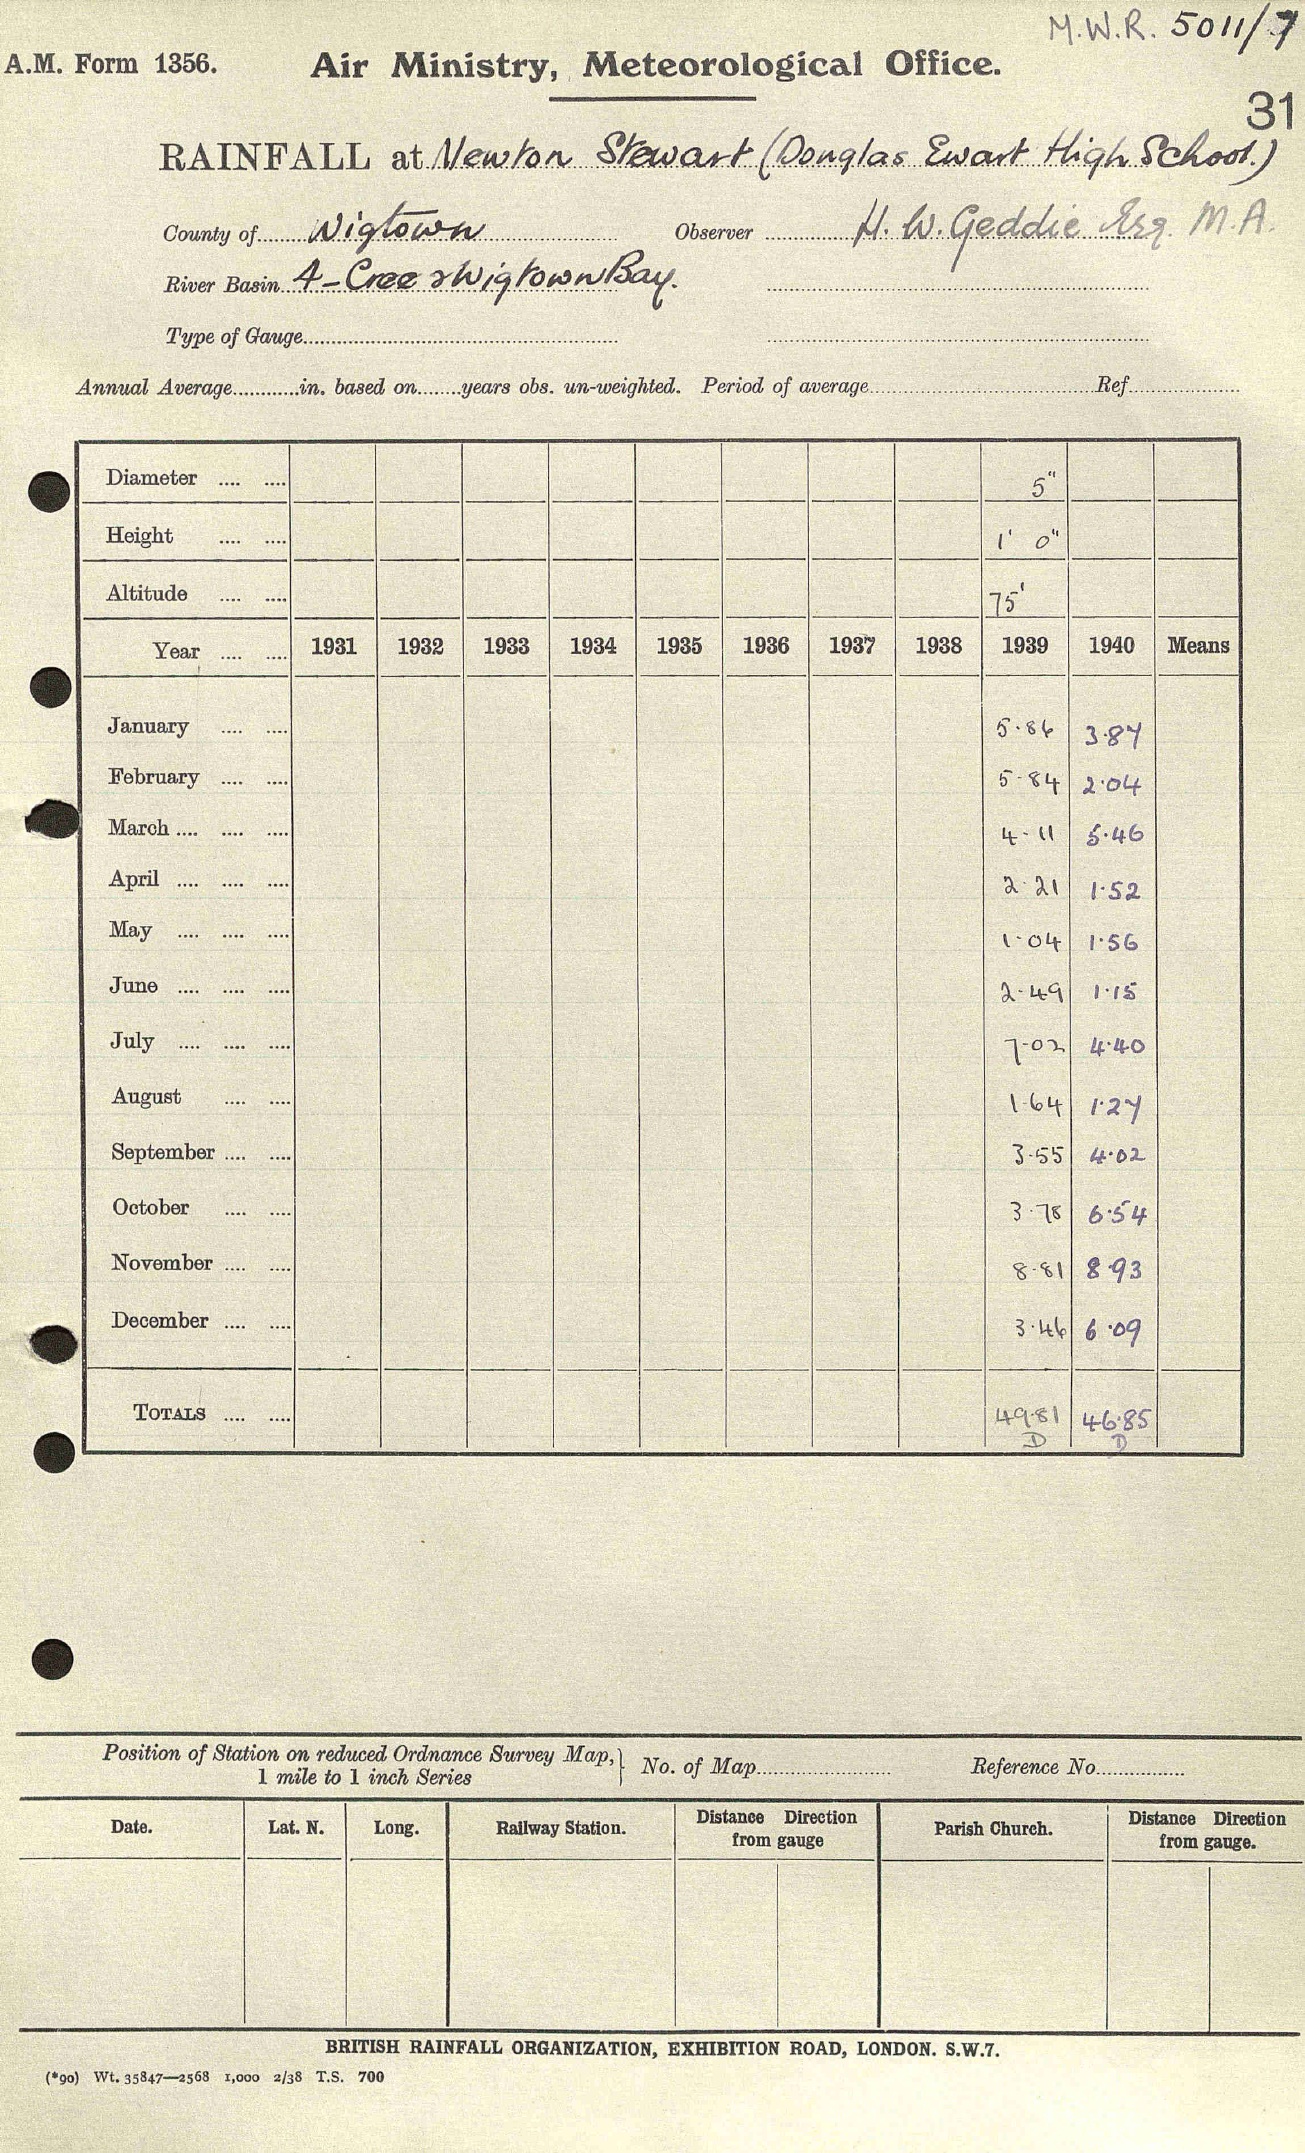 M.W.R. 5011/7
A.M. Form 1356. Air Ministry, Meteorological Office.
31
RAINFALL at Newton Stewart (Douglas Ewart High School.)
County of Wigtown Observer H. W. Geddie Esq. M.A.
River Basin 4-Cree & Wigtown Bay.
Type of Gauge
Annual Average in. based on years obs. un-weighted. Period of average Ref.
Diameter 5"
Height 1' 0"
Altitude 75'
Year 1931 1932 1933 1934 1935 1936 1937 1938 1939 1940 Means
January 5.86 3.87
February 5.84 2.04
March 4.11 5.46
April 2.21 1.52
May 1.04 1.56
June 2.49 1.15
July 7.02 4.40
August 1.64 1.27
September 3.55 4.02
October 3.78 6.54
November 8.81 8.93
December 3.46 6.09
TOTALS 49.81 46.85
D D
Position of Station on reduced Ordnance Survey Map, No. of Map Reference No.
1 mile to 1 inch Series
Date. Lat. N. Long. Railway Station. Distance Direction Parish Church. Distance Direction
from gauge from gauge.
BRITISH RAINFALL ORGANIZATION, EXHIBITION ROAD, LONDON. S.W.7.
(*90) Wt. 35847—2568 1,000 2/38 T.S. 700